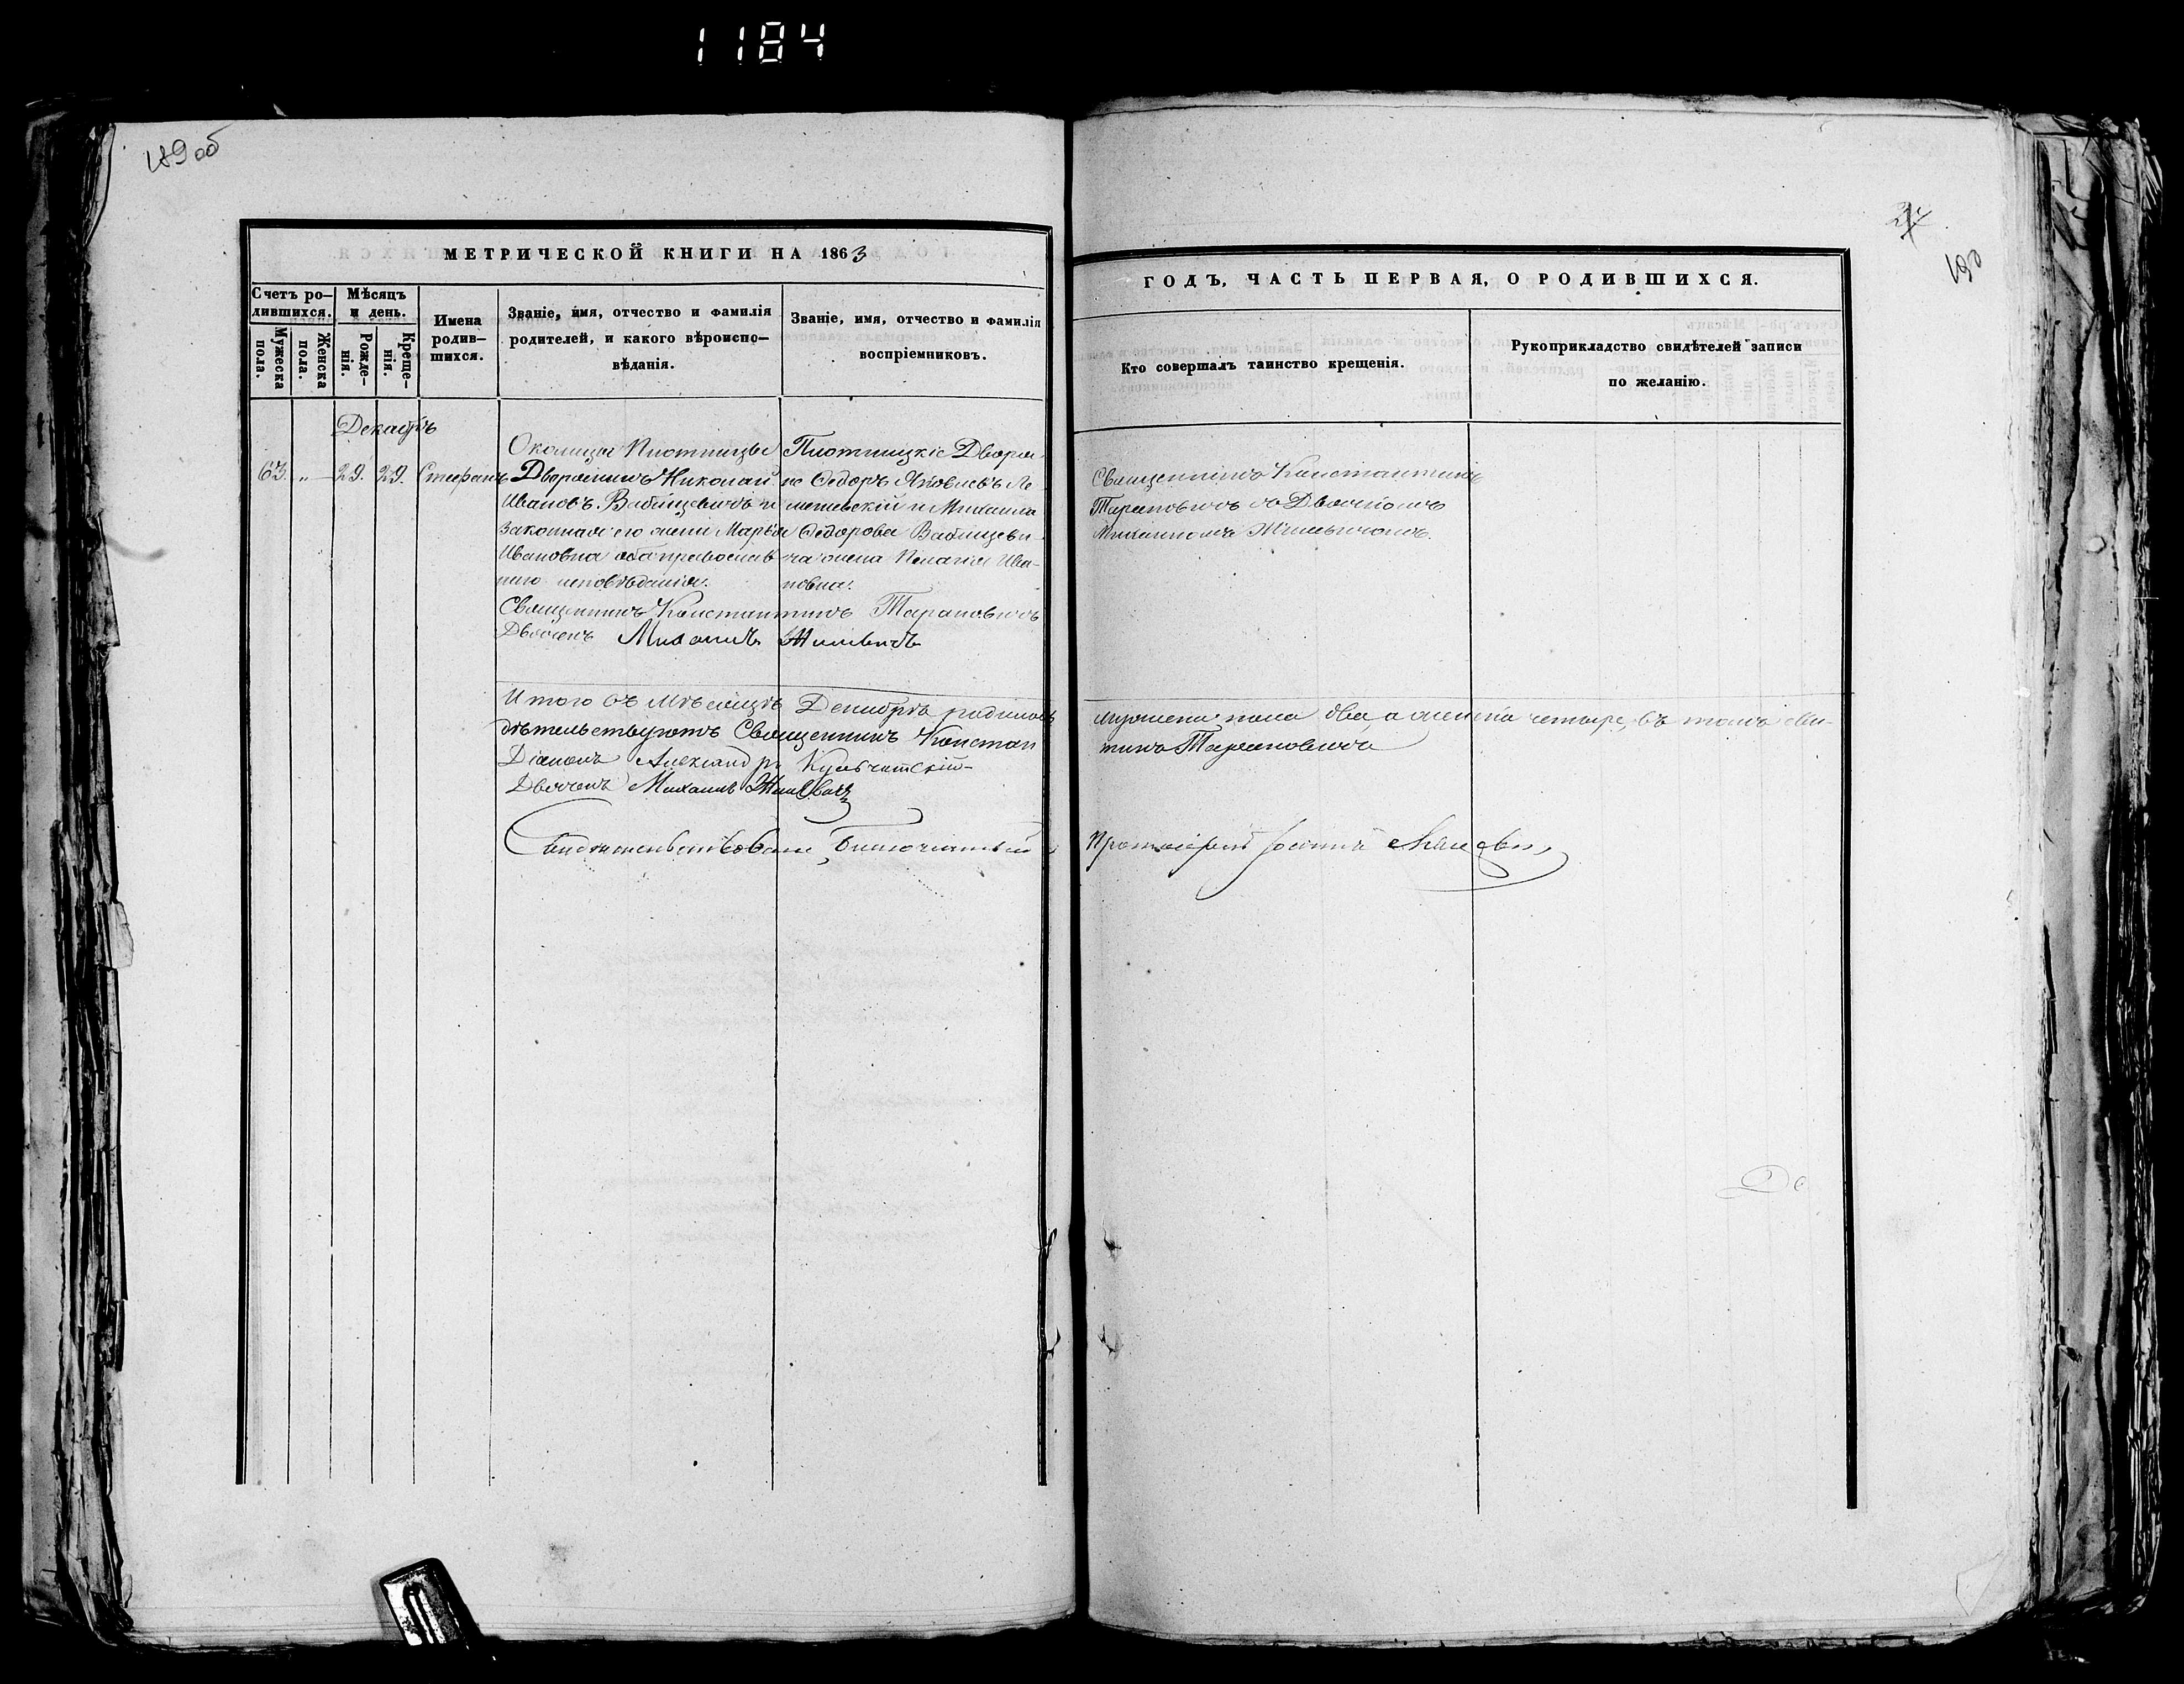 1184
189 об
190
МЕТРИЧЕСКОЙ КНИГИ НА 1863
ГОДЪ, ЧАСТЬ ПЕРВАЯ, О РОДИВШИХСЯ.
Счетъ ро-
дившихся.
Мужеска
пола.
Женска
пола.
Мѣсяцъ
и день.
Рожде-
нія.
Креще-
нія.
Имена
родив-
шихся.
Званіе, имя, отчество и фамилія
родителей, и какого вѣроиспо-
вѣданія.
Званіе, имя, отчество и фамилія
воспріемниковъ.
Кто совершалъ таинство крещенія.
Рукоприкладство свидѣтелей записи
по желанію.
Декабрь
63. „ 29. 29. Стефанъ
Околицы Плотницы
Дворянинъ Николай
Ивановъ Вабищевичъ и
законная его жена Марья
Ивановна оба православ
наго исповѣданія.
Плотницкіе Дворя-
не Ѳедоръ Яковлевъ
и Михаила
Ѳедорова Вабищеви-
ча жена Пелагія Ива-
новна.
Священникъ Константинъ
Тарановичъ съ Дьячкомъ
Михаиломъ
Священникъ Константинъ Тарановичъ
Дьячекъ Михаилъ Жилевичъ
Итого въ мѣсяцѣ Декабрѣ родилось
мужеска пола два а женска четыре, въ томъ сви-
дѣтельствуютъ Священникъ Констан
тинъ Тарановичъ
Діаконъ Александръ Кульчитскій
Дьячекъ Михаилъ Жилевичъ
Свидѣтельствовалъ, Благочинный
Протоіерей